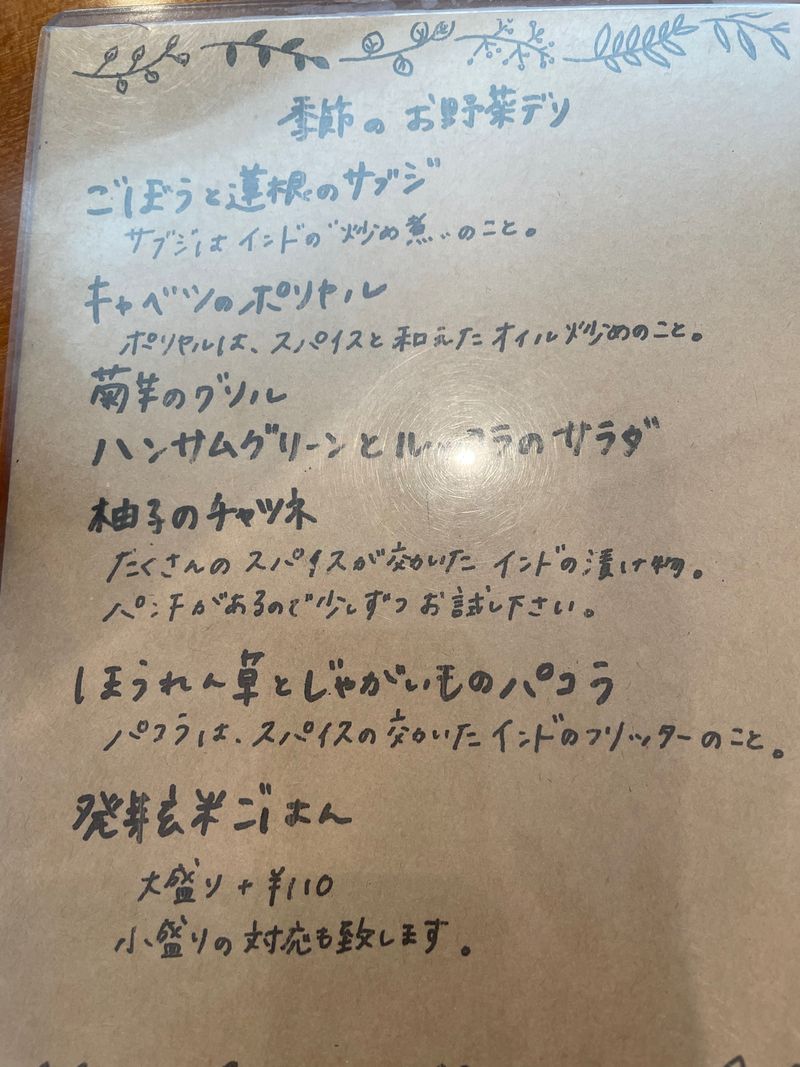 季節のお野菜デリ
ごぼうと蓮根のサブジ
サブジはインドの"炒め煮"のこと。
キャベツのポリヤル
ポリヤルは、スパイスと和えたオイル炒めのこと。
菊芋のグリル
ハンサムグリーンとルッコラのサラダ
柚子のチャツネ
たくさんのスパイスが効いたインドの漬け物。
パンチがあるので少しずつお試し下さい。
ほうれん草とじゃがいものパコラ
パコラは、スパイスの効いたインドのフリッターのこと。
発芽玄米ごはん
大盛り+¥110
小盛りの対応も致します。